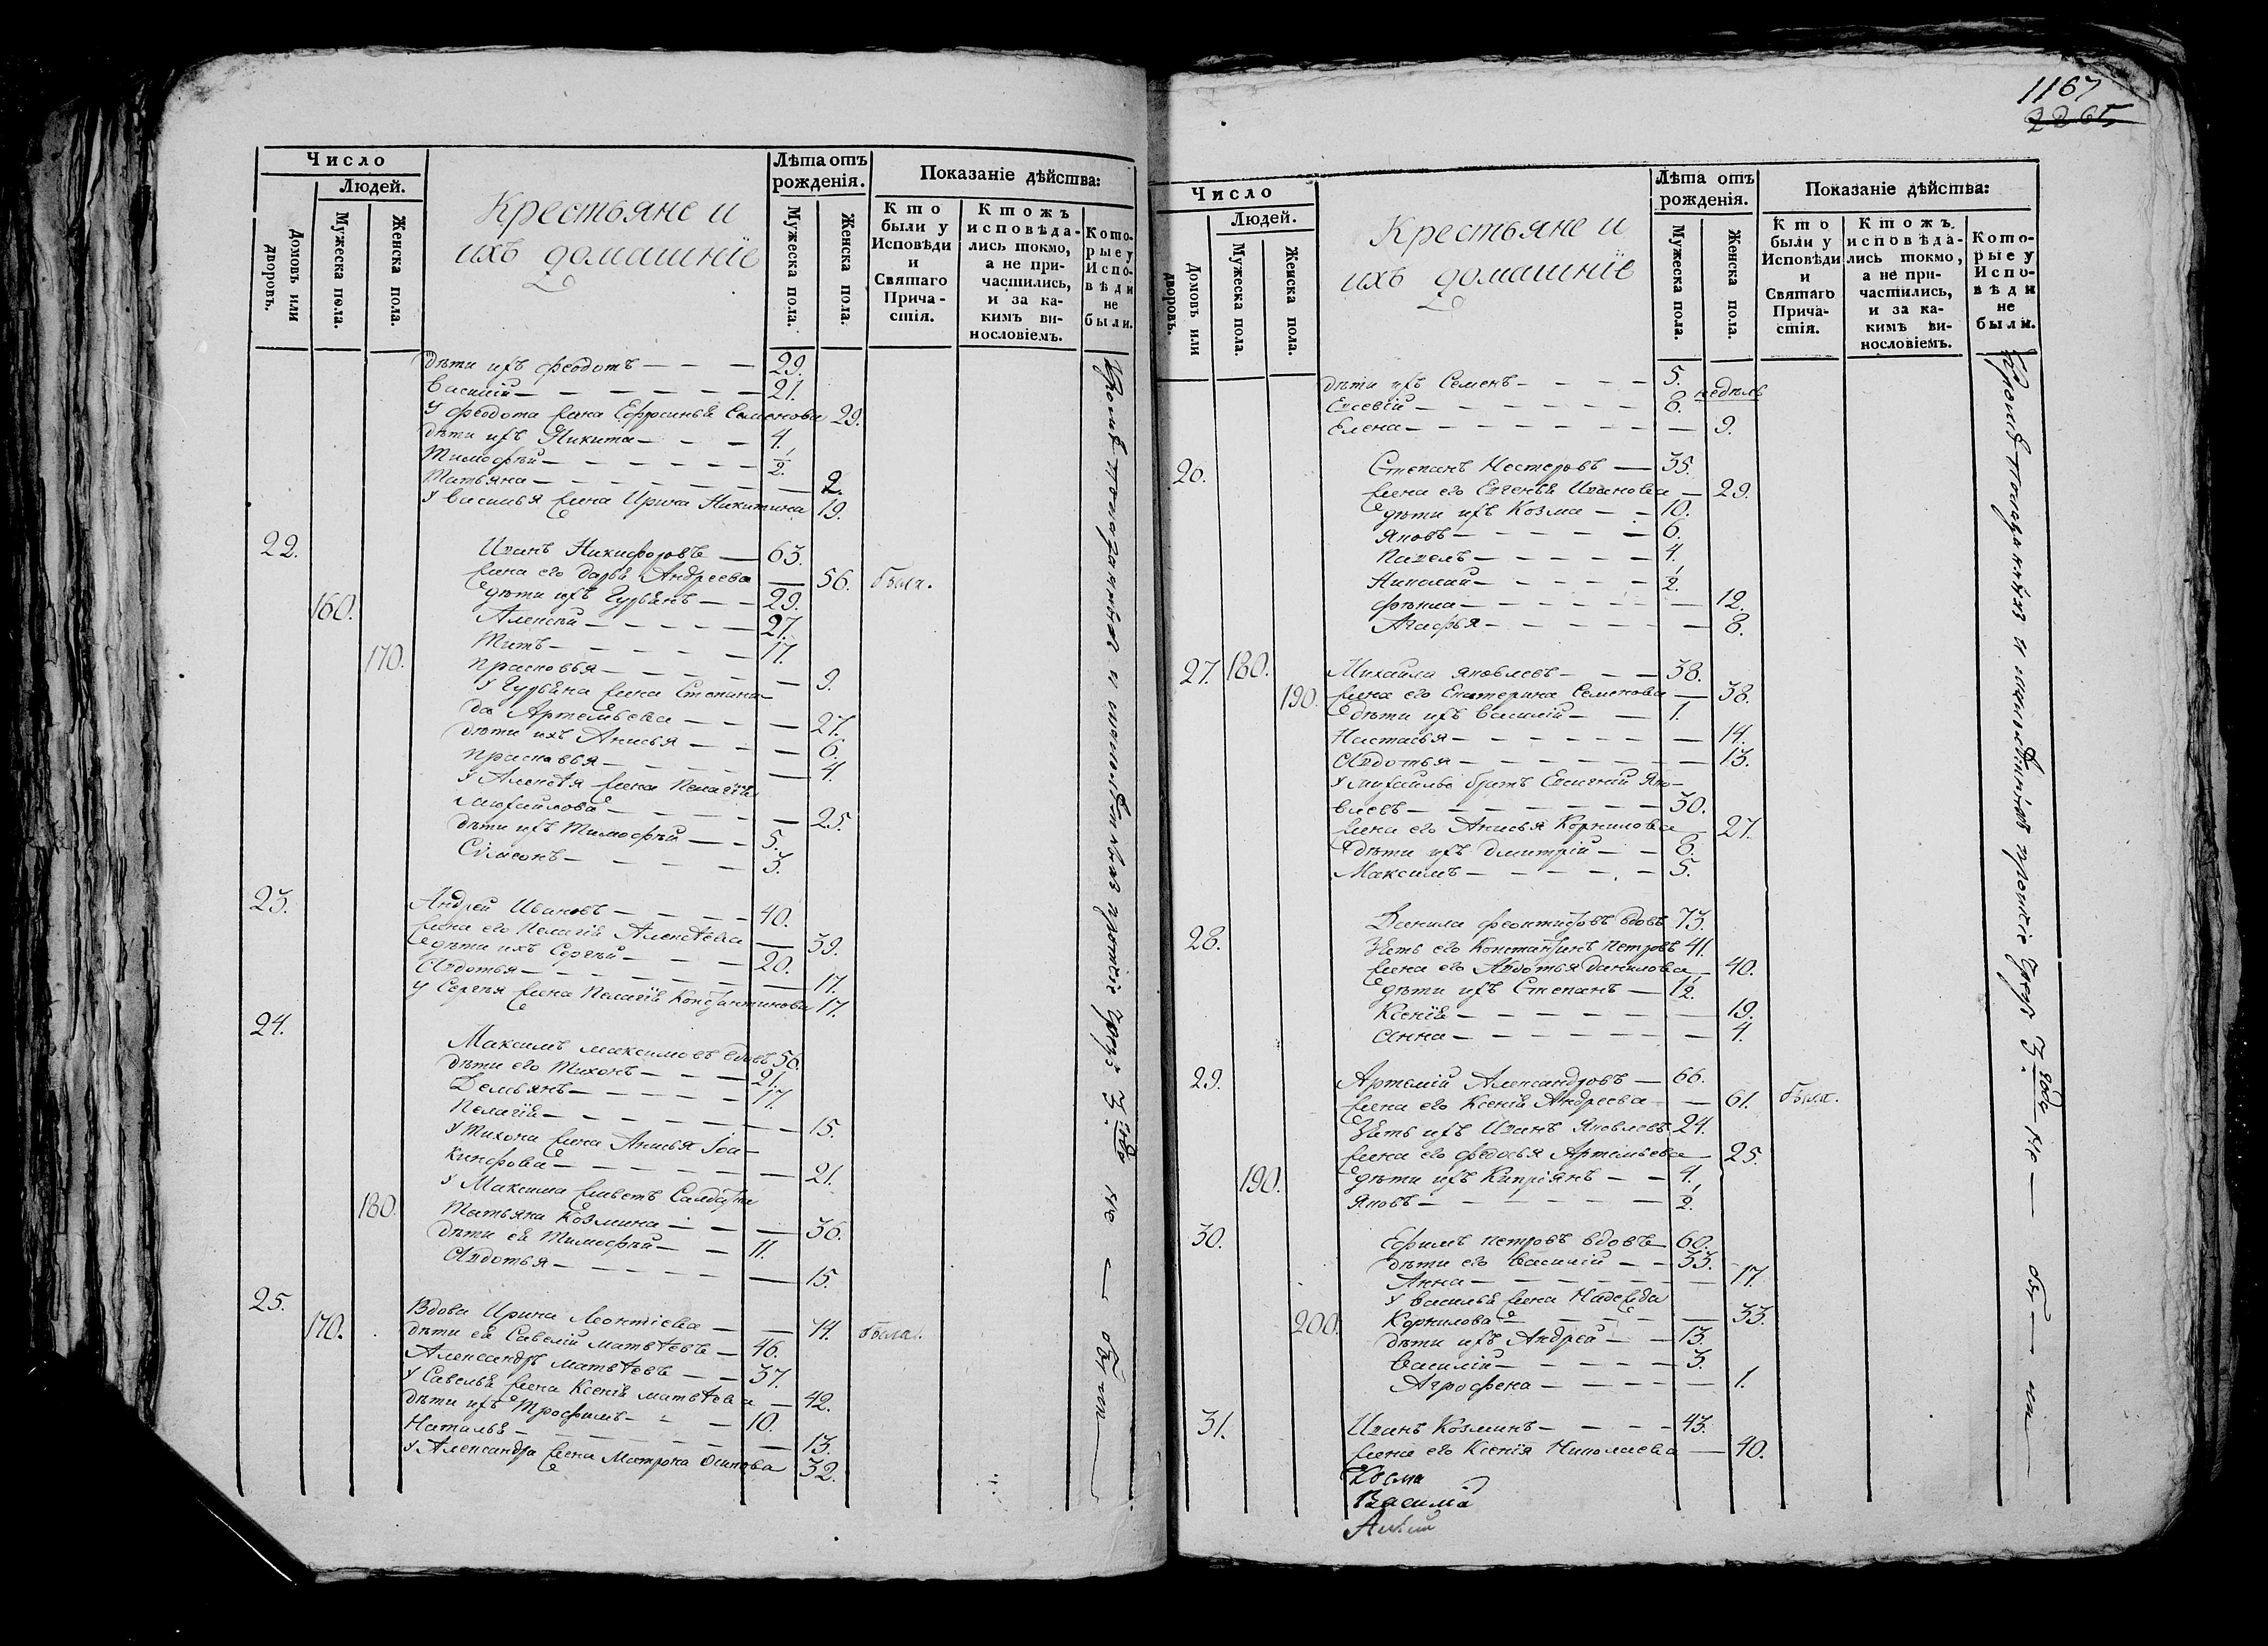 Число
Людей.
Домовъ или дворовъ.
Мужеска пола.
Женска пола.
Крестьяне и
ихъ домашніе
Лѣта отъ
рожденія.
Мужеска пола.
Женска пола.
Показаніе дѣйства:
Кто были у Исповѣди и Святаго Причастія.
Ктожъ исповѣдались токмо, а не причастились, и за какимъ винословіемъ.
Которые у Исповѣди не были.
дѣти ихъ Феодотъ — 29.
Василій — 21.
У Феодота жена Ефросинья Семенова 29.
дѣти ихъ Никита — 4.
Тимофѣй — ½.
Татьяна — 2.
У Василья жена Ирина Никитина 19.
22. Иванъ Никифоровъ — 63.
жена его Дарья Андреева — 56. была.
дѣти ихъ Гурьянъ — 29.
160. Алексѣй — 27.
Титъ — 17.
170. Прасковья — 9.
У Гурьяна жена Степани-
да Артемьева — 27.
дѣти ихъ Анисья — 6.
Прасковья — 4.
У Алексѣя жена Пелагія
Михайлова — 25.
дѣти ихъ Тимофѣй — 5.
Сімеонъ — 3.
23. Андрей Ивановъ — 40.
жена его Пелагія Алексѣева — 39.
дѣти ихъ Сергѣй — 20.
Авдотья — 11.
У Сергѣя жена Пелагія Константинова 17.
24. Максимъ Максимовъ вдовъ 56.
дѣти его Тихонъ — 21.
Демьянъ — 17.
Пелагія — 15.
У Тихона жена Анисья Іоа-
кинфова — 21.
У Максима живетъ Салдатка
180. Татьяна Козмина — 36.
дѣти ея Тимофѣй — 11.
Авдотья — 15.
25. Вдова Ирина Леонтіева — 74. была.
170. дѣти ея Савелій Матвѣевъ — 46.
Александръ Матвѣевъ — 37.
У Савелья жена Ксенія Матвѣева — 42.
дѣти ихъ Трофимъ — 10.
Наталья — 13.
У Александра жена Матрона Осипова 32.
Кромѣ показанныхъ и прочіе чрезъ 3 года не — бы — ли —
1167
2265
Число
Людей.
Домовъ или дворовъ.
Мужеска пола.
Женска пола.
Крестьяне и
ихъ домашніе
Лѣта отъ
рожденія.
Мужеска пола.
Женска пола.
Показаніе дѣйства:
Кто были у Исповѣди и Святаго Причастія.
Ктожъ исповѣдались токмо, а не причастились, и за какимъ винословіемъ.
Которые у Исповѣди не были.
дѣти ихъ Семенъ — 5.
Евсевій — 8. недѣль
Елена — 9.
26. Степанъ Нестеровъ — 35.
жена его Евгенья Иванова — 29.
дѣти ихъ Козма — 10.
Яковъ — 6.
Павелъ — 4.
Николай — ½.
Фекла — 12.
Агафья — 8.
27. 180. Михайла Яковлевъ — 38.
190. жена его Екатерина Семенова — 38.
дѣти ихъ Василій — 1.
Настасья — 14.
Авдотья — 13.
У Михайлы братъ Евгеній Яко-
влевъ — 30.
жена его Анисья Корнилова — 27.
дѣти ихъ Дмитрій — 8.
Максимъ — 5.
28. Данила вдовъ 73.
Зять его Константинъ Петровъ 41.
жена его Авдотья Данилова — 40.
дѣти ихъ Степанъ — ½.
Ксенія — 19.
Анна — 4.
29. Артемій Александровъ — 66.
жена его Ксенія Андреева — 61. была.
Зять ихъ Иванъ Яковлевъ 24.
жена его Федосья Артемьева — 25.
190. дѣти ихъ Кипріянъ — 4.
Яковъ — ½.
30. Ефимъ Петровъ вдовъ — 60.
дѣти его Василій — 33.
Анна — 17.
У Василья жена Надежда
200. Корнилова — 33.
дѣти ихъ Андрей — 13.
Василій — 3.
Агрофена — 1.
31. Иванъ Козминъ — 43.
жена его Ксенія Николаева — 40.
Козма
Василій
Кромѣ показанныхъ и прочіе чрезъ 3 года не — бы — ли —